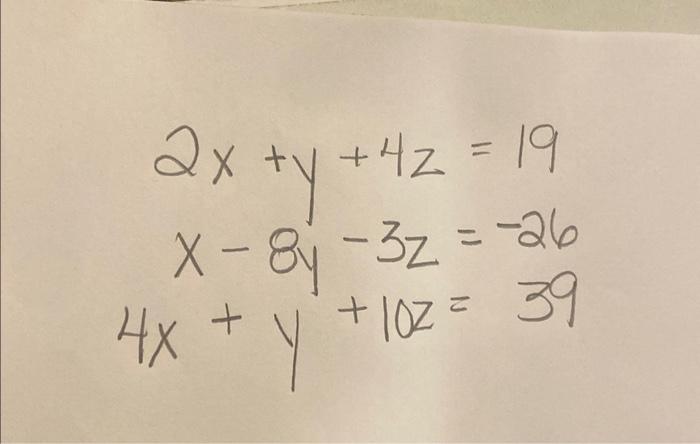 2x + y + 4z = 19
x - 8y - 3z = -26
4x + y + 10z = 39